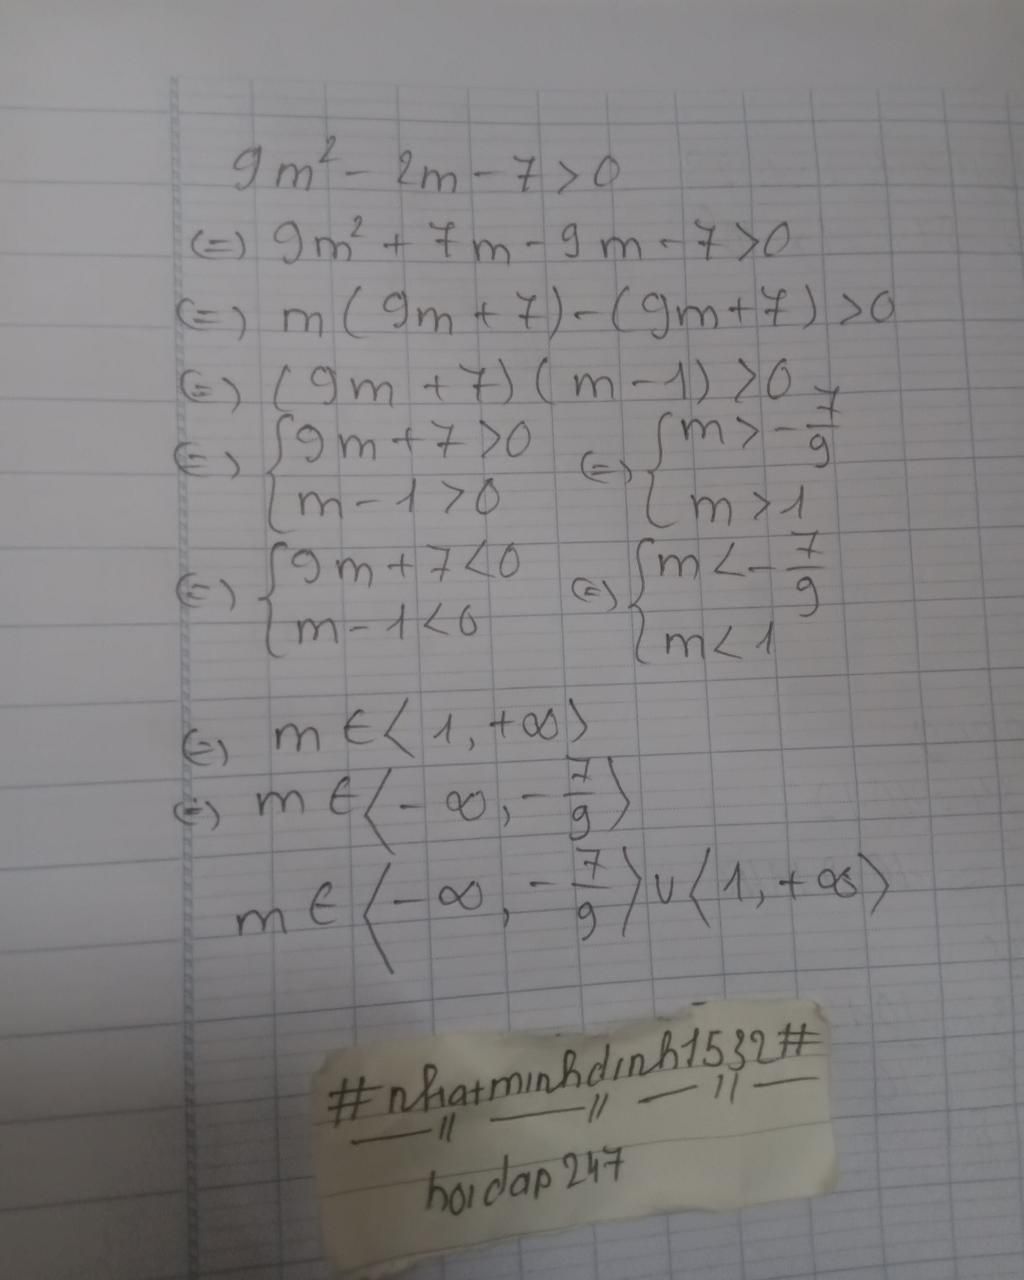 9m² - 2m - 7 > 0
(=) 9m² + 7m - 9m - 7 > 0
(=) m(9m + 7) - (9m + 7) > 0
(=) (9m + 7)(m - 1) > 0
(=) { 9m + 7 > 0 (=) { m > -7/9
m - 1 > 0 m > 1
(=) { 9m + 7 < 0 (=) { m < -7/9
m - 1 < 0 m < 1
(=) m ∈ ⟨1, +∞⟩
(=) m ∈ ⟨-∞, -7/9⟩
m ∈ ⟨-∞, -7/9⟩ ∪ ⟨1, +∞⟩
#nhatminhdinh1532#
hoidap247